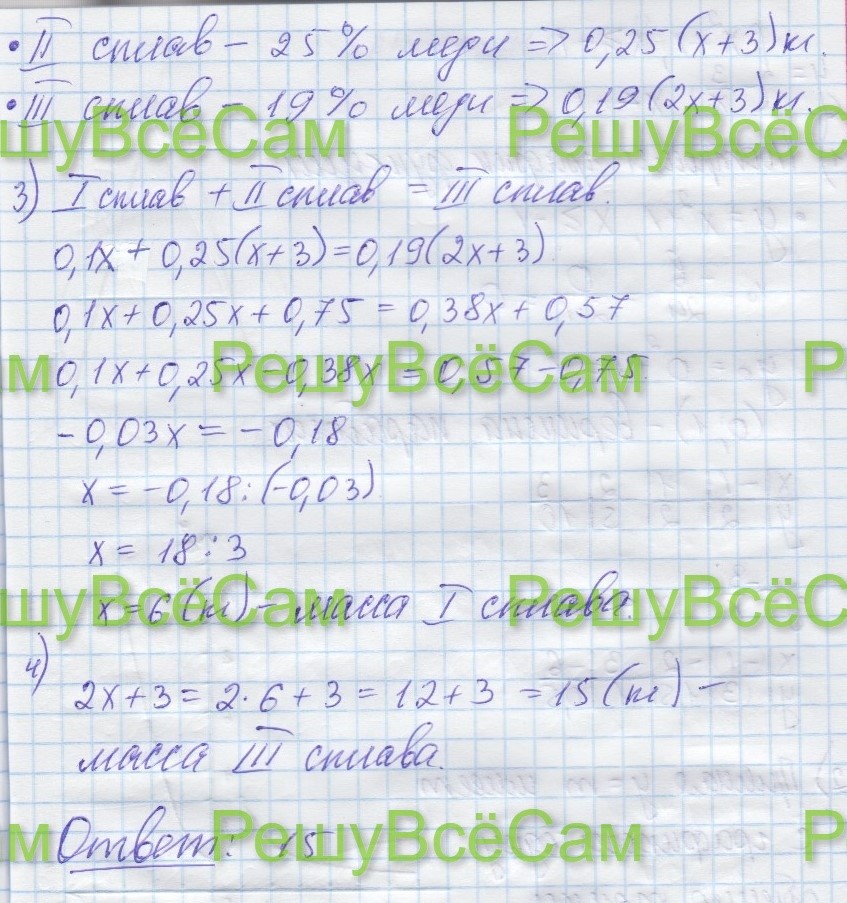 • II сплав – 25% меди => 0,25(x+3) кг.
• III сплав – 19% меди => 0,19(2x+3) кг.
РешуВсёСам
3) I сплав + II сплав = III сплав.
0,1x + 0,25(x+3) = 0,19(2x+3)
0,1x + 0,25x + 0,75 = 0,38x + 0,57
0,1x + 0,25x – 0,38x = 0,57 – 0,75
РешуВсёСам
– 0,03x = – 0,18
x = –0,18 : (–0,03)
x = 18 : 3
x = 6 (кг) – масса I сплава.
РешуВсёСам
4)
2x + 3 = 2·6 + 3 = 12 + 3 = 15 (кг) –
масса III сплава.
Ответ: 15
РешуВсёСам